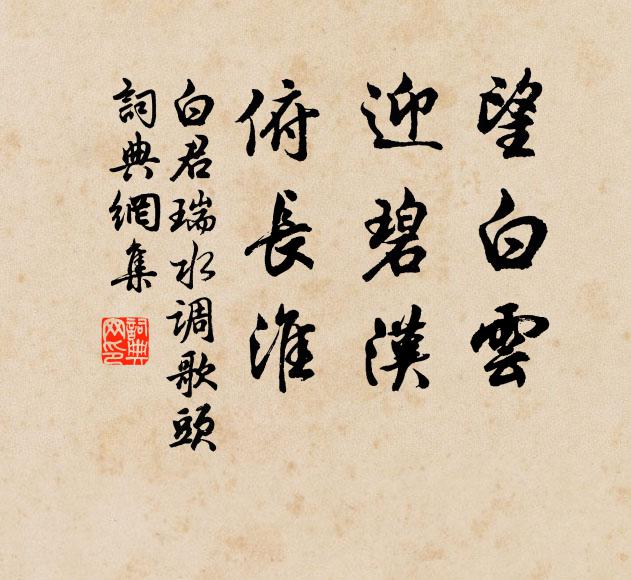 望白雲
迎碧漢
俯長淮
白君瑞水调歌頭
詞典網集
詞典网印